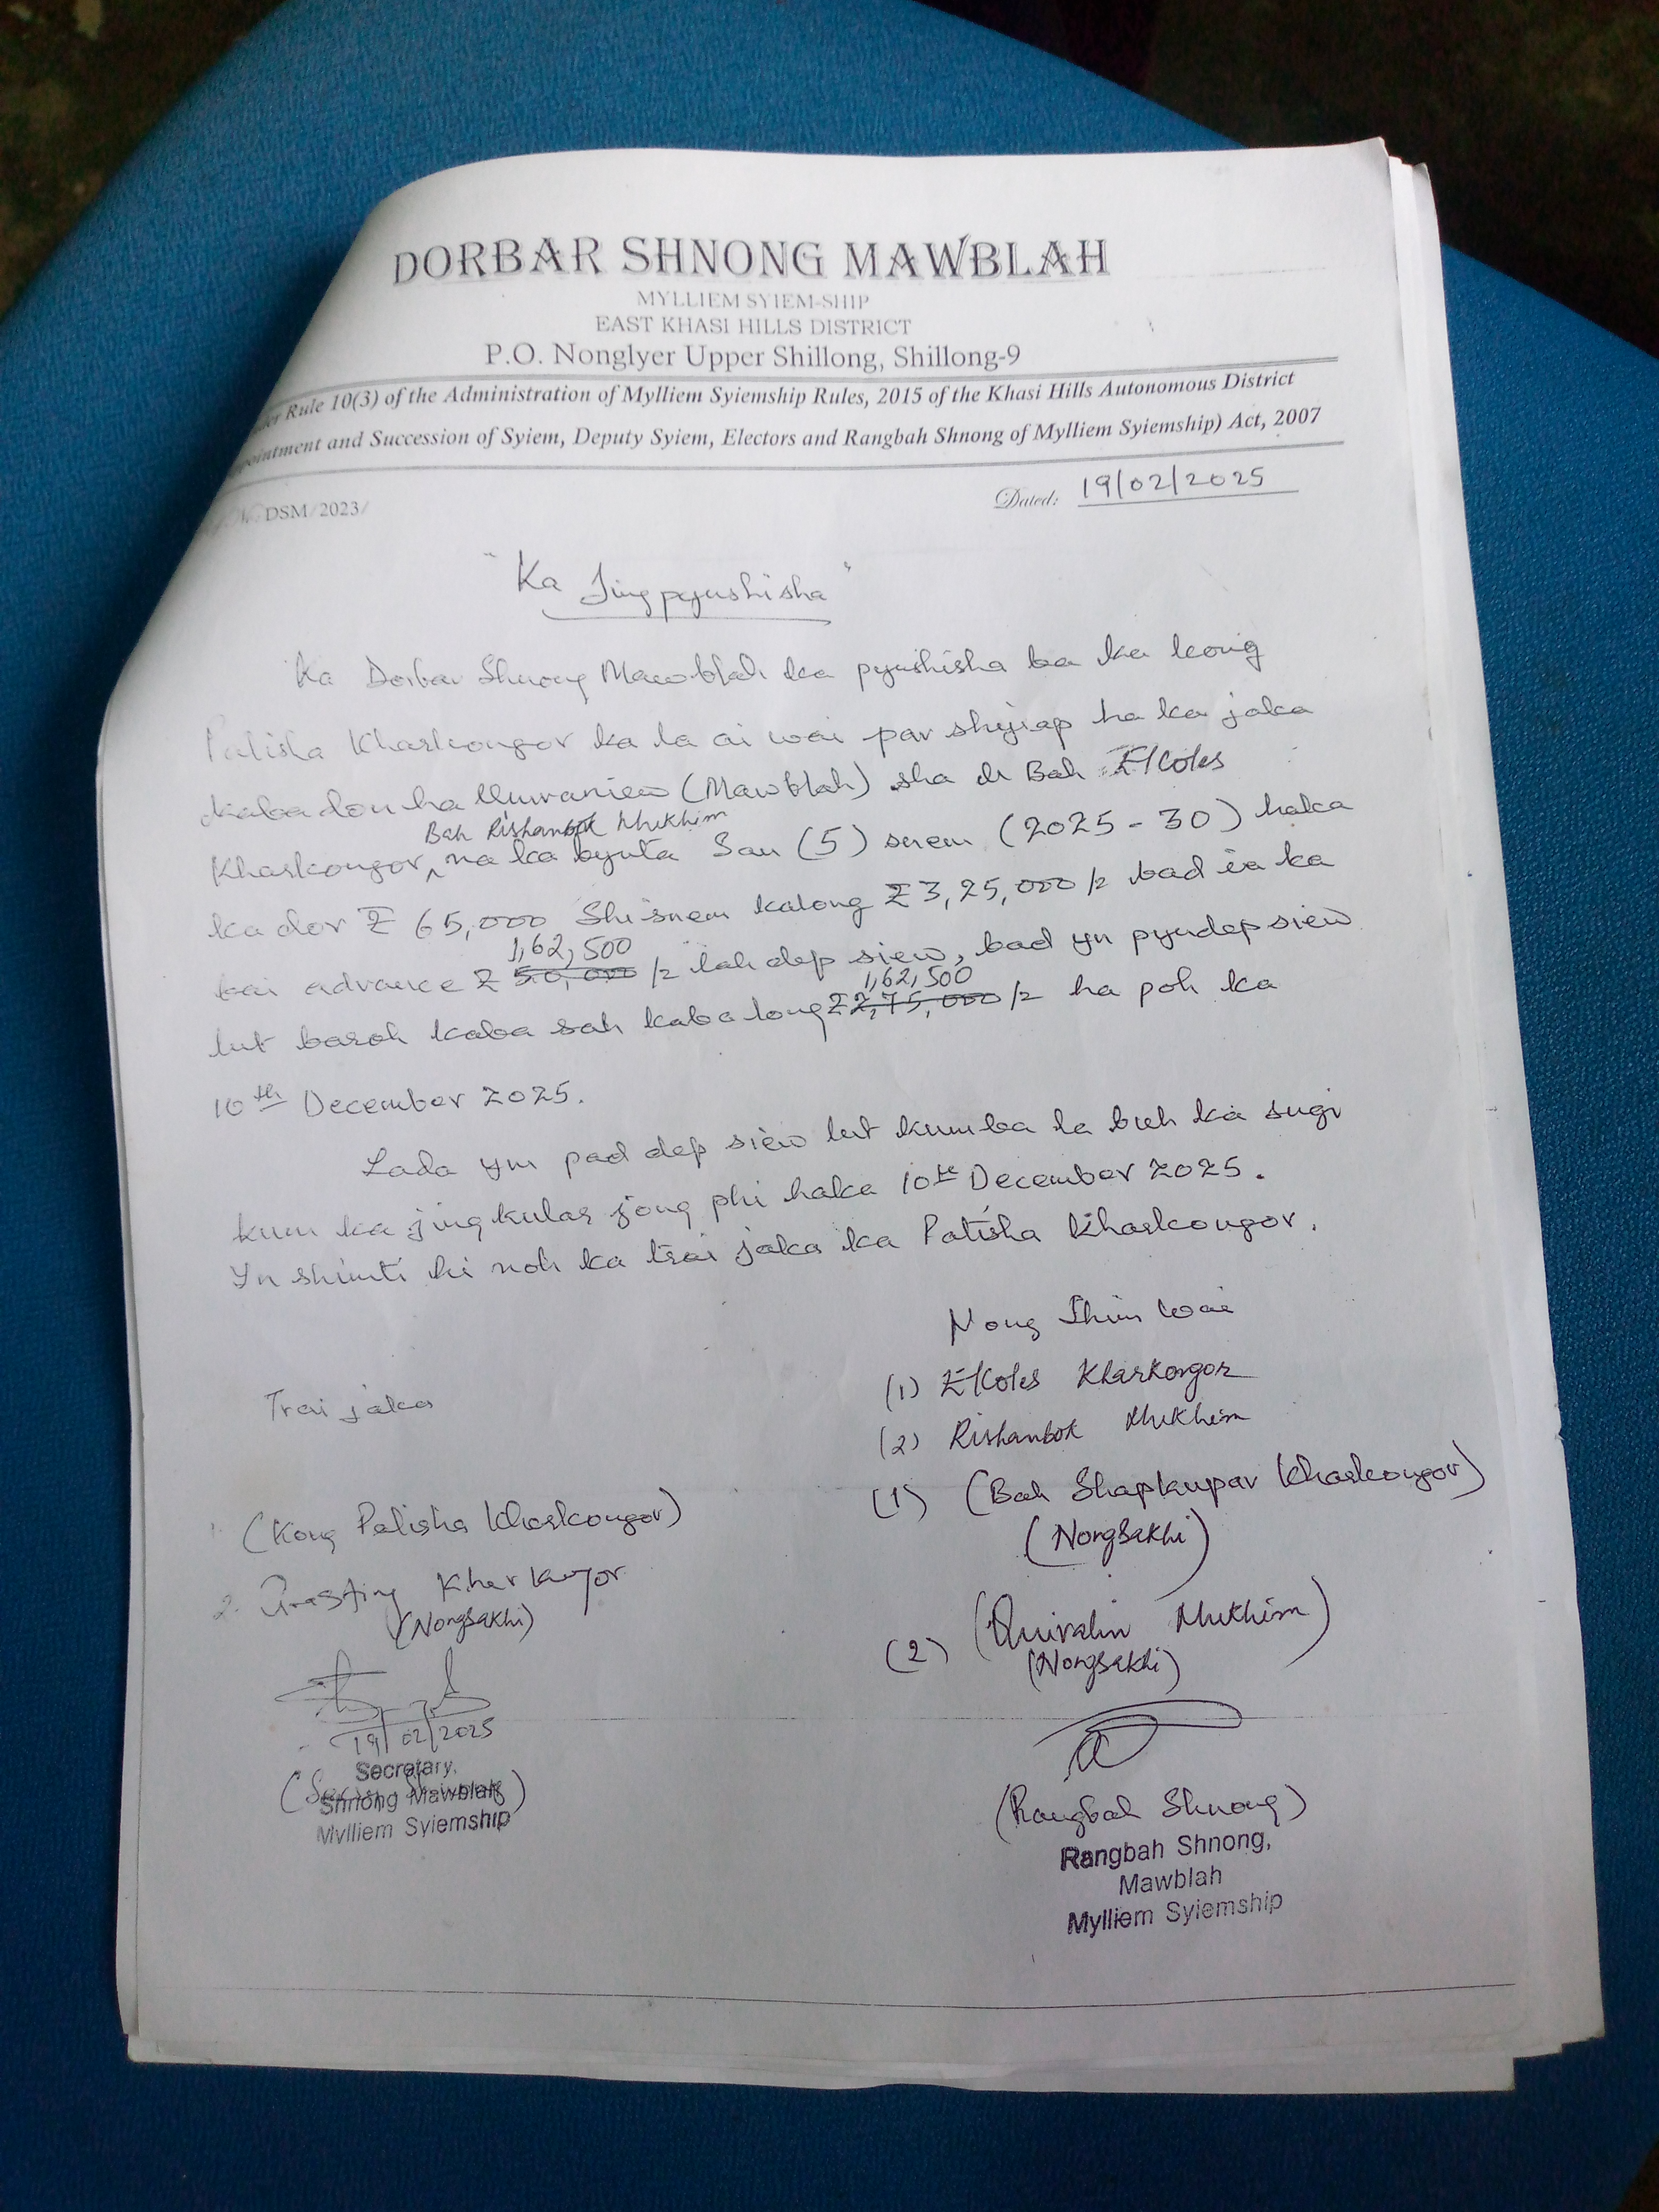 DORBAR SHNONG MAWBLAH
MYLLIEM SYIEM-SHIP
EAST KHASI HILLS DISTRICT
P.O. Nonglyer Upper Shillong, Shillong-9
Rule 10(3) of the Administration of Mylliem Syiemship Rules, 2015 of the Khasi Hills Autonomous District
and Succession of Syiem, Deputy Syiem, Electors and Rangbah Shnong of Mylliem Syiemship) Act, 2007
DSM/2023/
Dated: 19/02/2025
"Ka Jingpynshisha"
Ka Dorbar Shnong Mawblah ka pynshisha ba ka kong
Palisha Kharkongor ka la ai wai par shyiap ha ka jaka
kaba don ha (Mawblah) sha u Bah Elcoles
Bah Rishanbok Mukhim
Kharkongor, na ka bynta San (5) snem (2025-30) haka
ka dor ₹ 65,000 Shisnem kalong ₹ 3,25,000/- bad ia ka
1,62,500
bai advance ₹ 50,000/- lah dep siew, bad yn pyndep siew
1,62,500
lut baroh kaba sah kaba long ₹ 2,75,000/- ha poh ka
10th December 2025.
Lada ym pad dep siew lut kumba la buh ka
kum ka jingkular jong phi haka 10th December 2025.
Yn shimti hi noh ka trai jaka ka Palisha Kharkongor.
Nong Shim Wai
(1) Elcoles Kharkongor
Trai jaka
(2) Rishanbok Mukhim
(1) (Bah Shapkupar Kharkongor)
(Nongsakhi)
1. (Kong Palisha Kharkongor)
2. Kharkongor
(Nongsakhi)
(2) Mukhim)
(Nongsakhi)
19/02/2025
Secretary,
Shnong Mawblah
Mylliem Syiemship
(Rangbah Shnong)
Rangbah Shnong,
Mawblah
Mylliem Syiemship